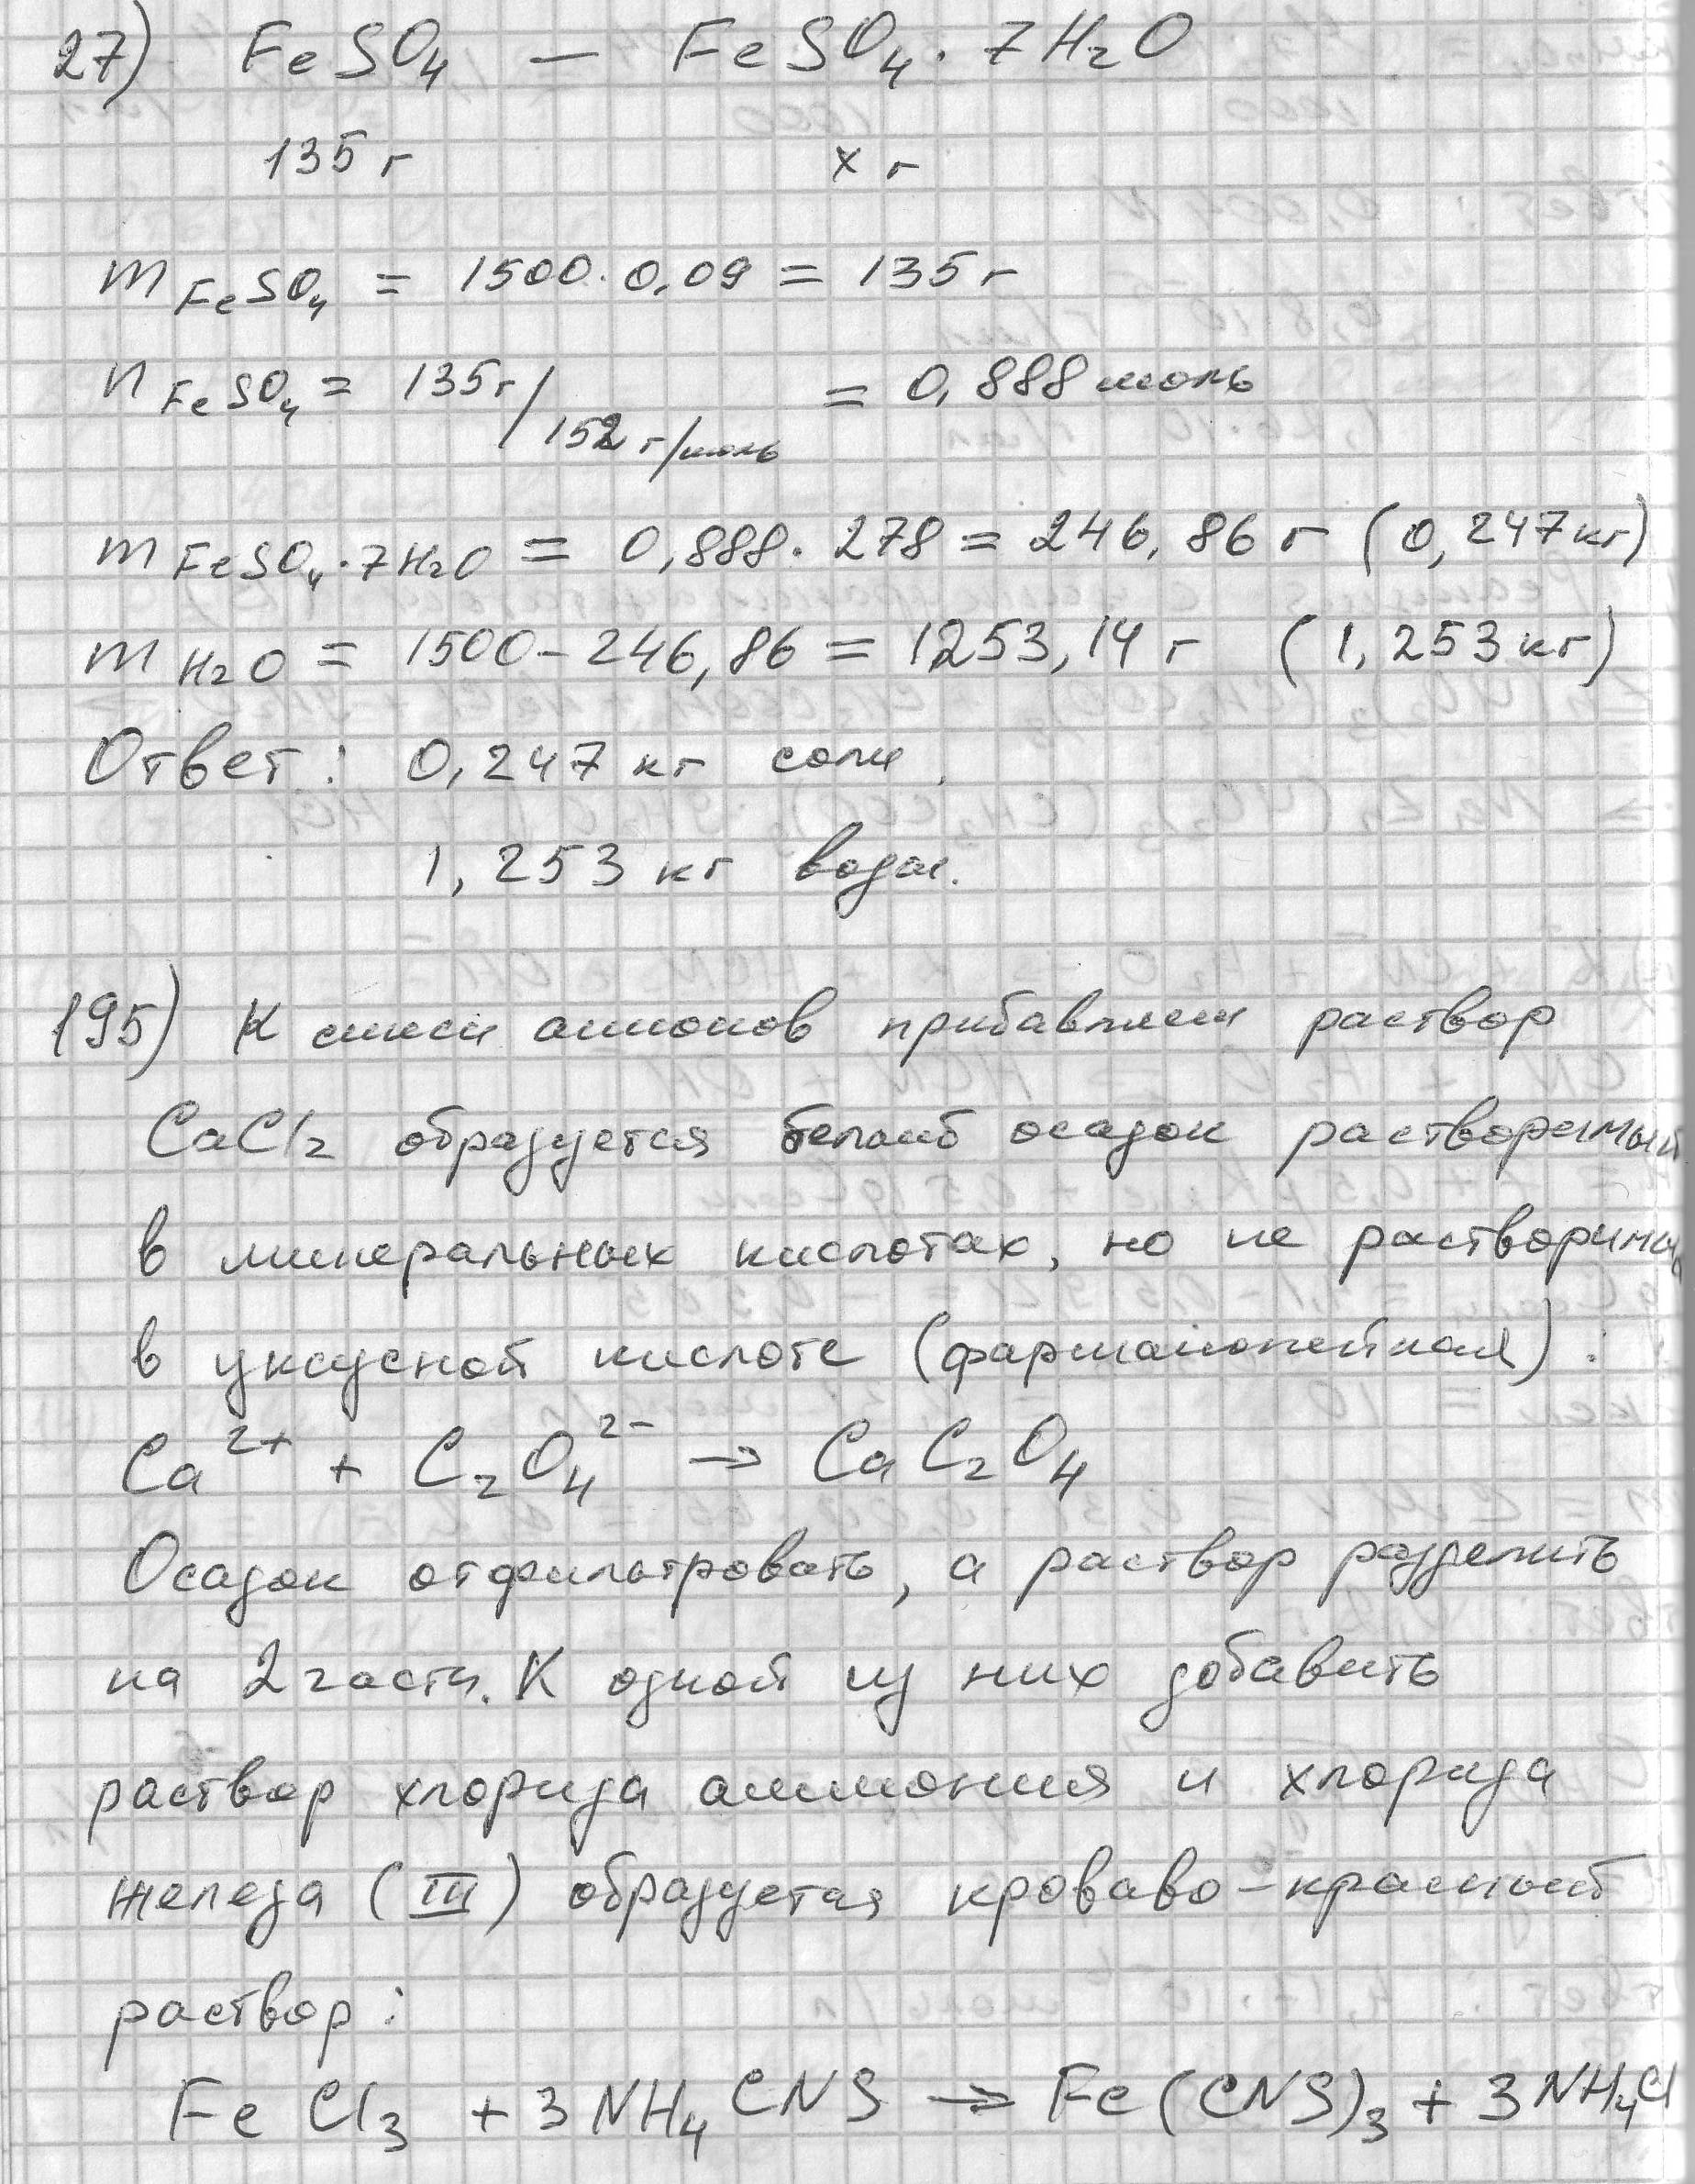 27) FeSO₄ — FeSO₄ · 7H₂O
135 г x г
m FeSO₄ = 1500 · 0,09 = 135 г
n FeSO₄ = 135 г / 152 г/моль = 0,888 моль
m FeSO₄·7H₂O = 0,888 · 278 = 246,86 г (0,247 кг)
m H₂O = 1500 - 246,86 = 1253,14 г (1,253 кг)
Ответ: 0,247 кг соли,
1,253 кг воды.
195) К смеси анионов прибавляем раствор
CaCl₂ образуется белый осадок растворимый
в минеральных кислотах, но не растворимый
в уксусной кислоте (фармакопейная):
Ca²⁺ + C₂O₄²⁻ → CaC₂O₄
Осадок отфильтровать, а раствор разделить
на 2 части. К одной из них добавить
раствор хлорида аммония и хлорида
железа (III) образуется кроваво-красный
раствор:
FeCl₃ + 3NH₄CNS → Fe(CNS)₃ + 3NH₄Cl